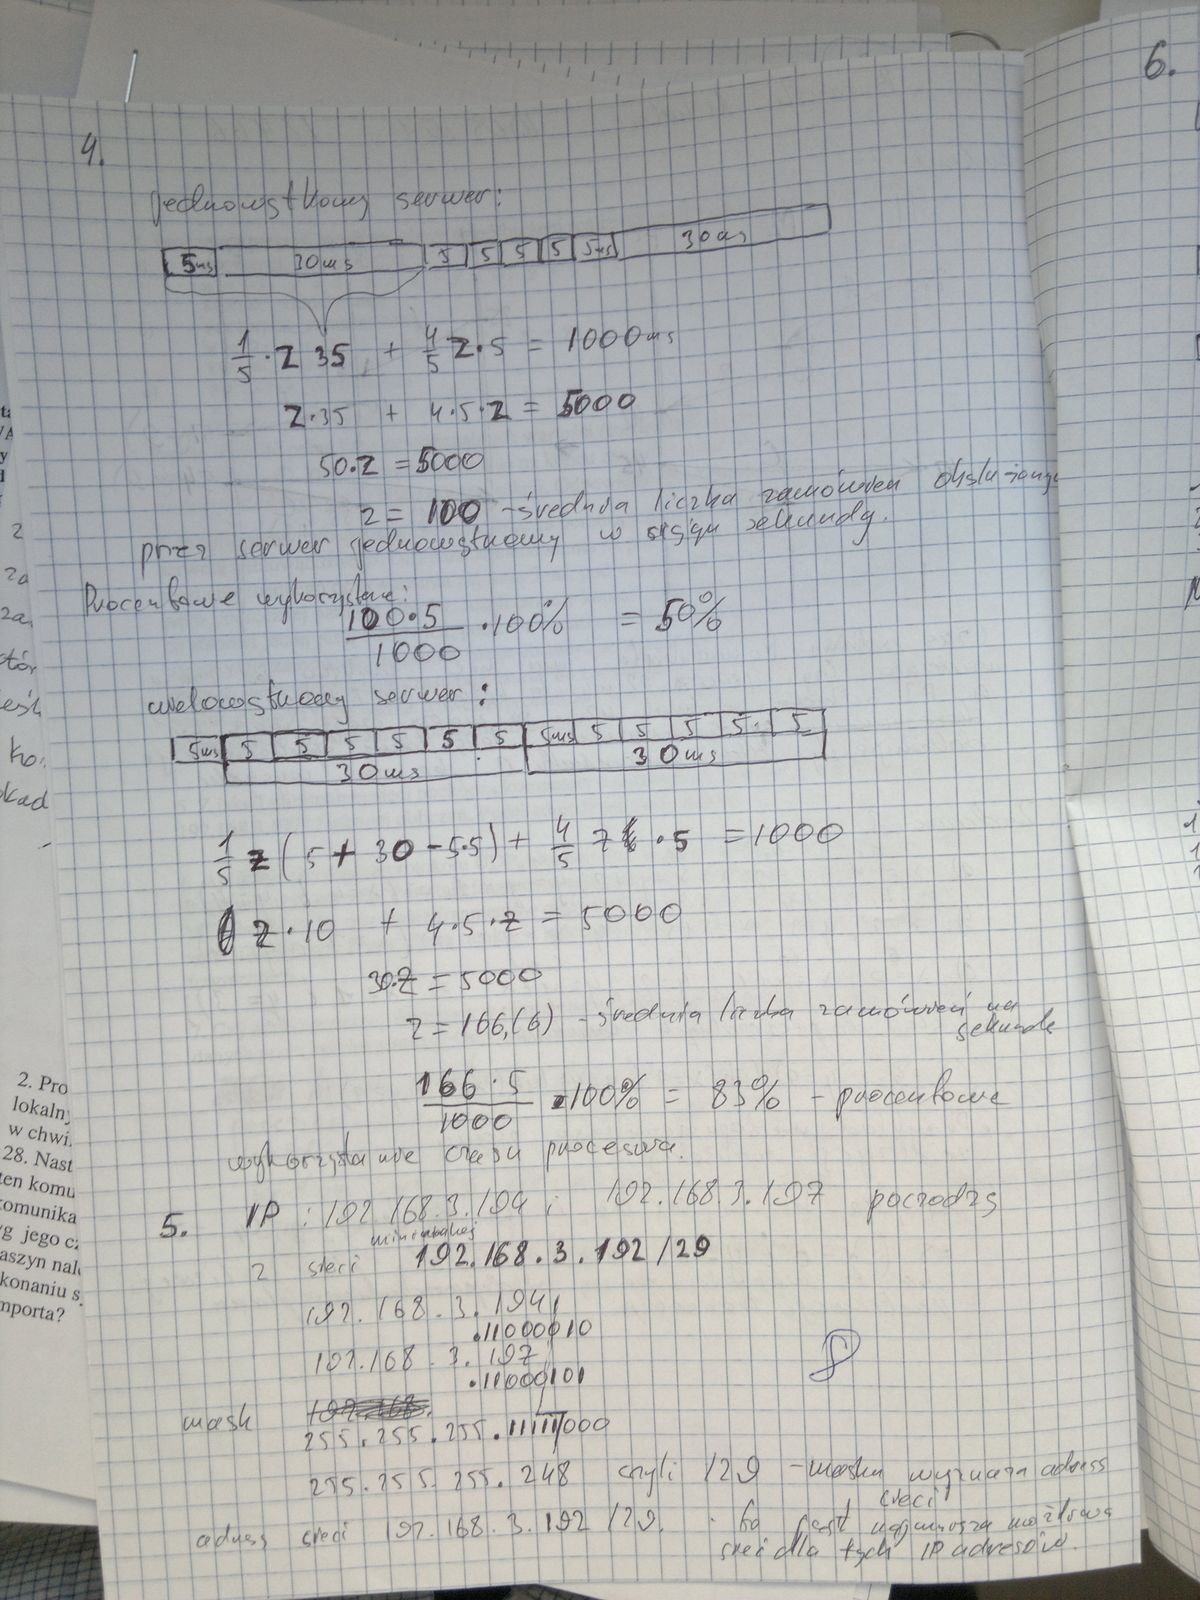 4.
jednowątkowy serwer:
5ms 30ms 5 5 5 5 5ms 30ms
1/5 · Z 35 + 4/5 Z·5 = 1000ms
Z·35 + 4·5·Z = 5000
50·Z = 5000
Z = 100 - średnia liczba zamówień obsłużonych
przez serwer jednowątkowy w ciągu sekundy.
Procentowe wykorzystanie:
100·5/1000 · 100% = 50%
wielowątkowy serwer:
5ms 5 5 5 5 5 5 5ms 5 5 5 5 5
30ms 30ms
1/5 Z (5 + 30 - 5·5) + 4/5 Z · 5 = 1000
Z·10 + 4·5·Z = 5000
30·Z = 5000
Z = 166,(6) - średnia liczba zamówień na
sekundę
166·5/1000 · 100% = 83% - procentowe
wykorzystanie czasu procesora.
5. IP : 192.168.3.194 i 192.168.3.197 pochodzą
minimalnej
z sieci 192.168.3.192/29
192.168.3.194
.11000010
192.168.3.197
.11000101
mask
255.255.255.11111000
255.255.255.248 czyli /29 - maska wyznacza adress
sieci
adress sieci 192.168.3.192/29. to jest najmniejsza możliwa
sieć dla tych IP adresów.
8
6.
2
za
za
tór
ko
kad
2. Pro
lokaln
w chwi
28. Nast
ten komu
komunika
g jego cz
aszyn nal
konaniu s
mporta?